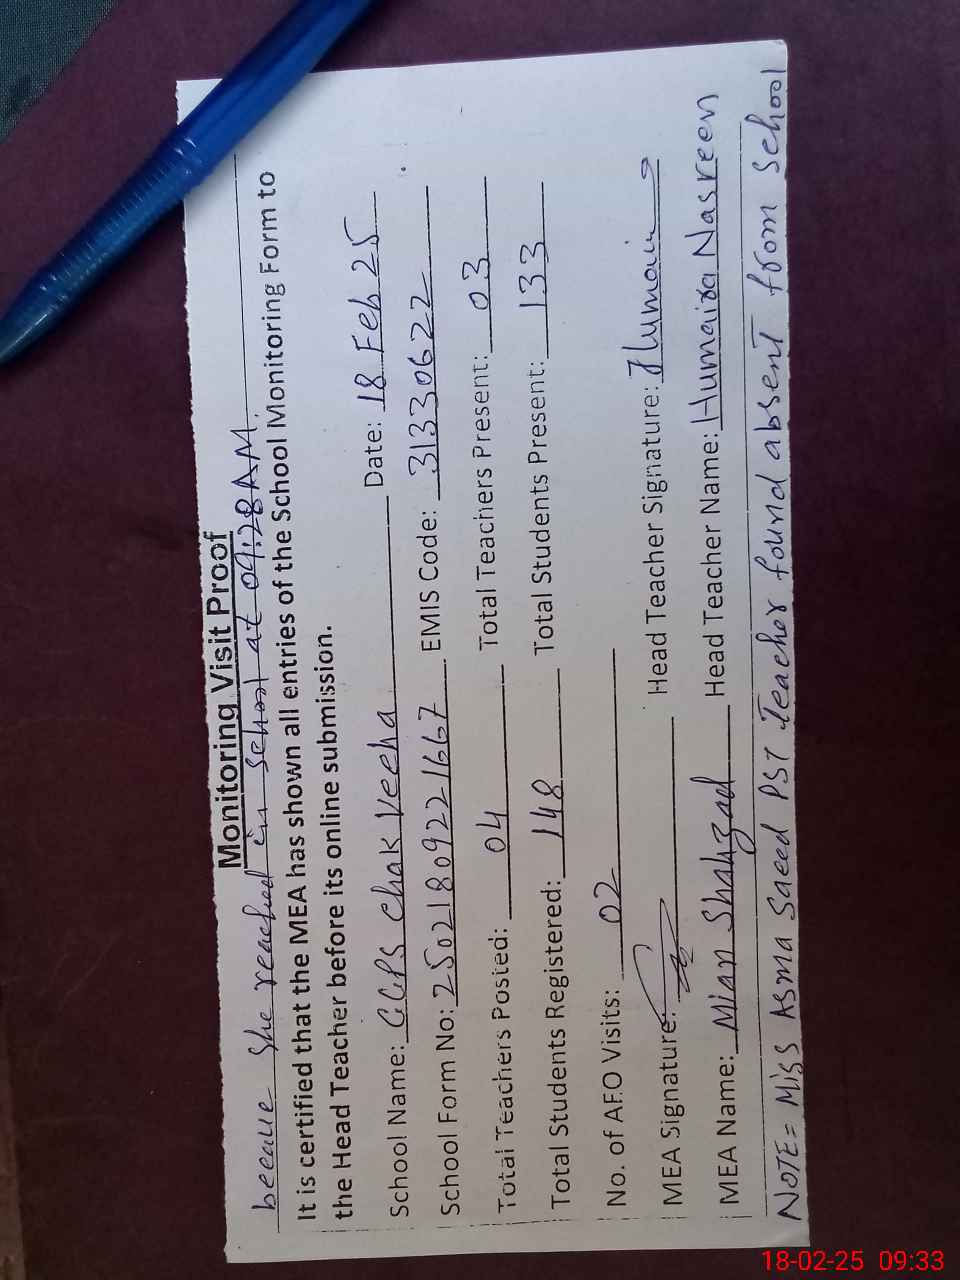 Monitoring Visit Proof
because She reached in school at 09:28AM.
It is certified that the MEA has shown all entries of the School Monitoring Form to
the Head Teacher before its online submission.
School Name: GGPS Chak Veeha Date: 18 Feb 25
School Form No: 25021809221667 EMIS Code: 31330622
Total Teachers Posted: 04 Total Teachers Present: 03
Total Students Registered: 148 Total Students Present: 133
No. of AEO Visits: 02
MEA Signature: Head Teacher Signature: Humaira
MEA Name: Mian Shahzad Head Teacher Name: Humaira Nasreen
NOTE= Miss Asma Saeed PST Teacher found absent from School
18-02-25 09:33